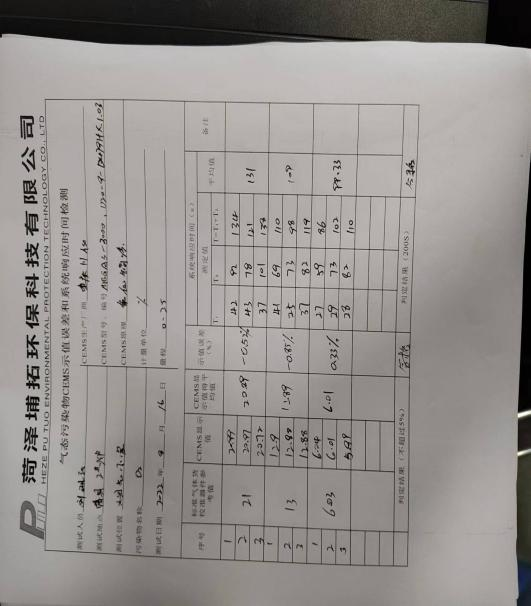 菏泽埔拓环保科技有限公司
HEZE PU TUO ENVIRONMENTAL PROTECTION TECHNOLOGY CO., LTD
气态污染物CEMS示值误差和系统响应时间检测
测试人员 CEMS生产厂商
测试地点 CEMS型号、编号
测试位置 CEMS原理
污染物名称 O₂ 计量单位 %
测试日期 2022 年 9 月 16 日 量程 0-25
序号 标准气体或校准器件参考值 CEMS显示值 CEMS显示值得平均值 示值误差(%) 系统响应时间(s) 备注
测定值 平均值
T₁ T₂ T=T₁+T₂
1 21 20.99 20.89 -0.53% 42 92 134 131
2 20.97 43 78 121
3 20.72 37 101 138
1 13 12.9 12.89 -0.85% 41 69 110 109
2 12.88 25 73 98
3 12.88 37 82 119
1 6.03 6.04 6.01 0.33% 27 59 86 99.33
2 6.01 29 73 102
3 5.98 28 82 110
判定结果(不超过5%) 合格 判定结果(200S) 合格